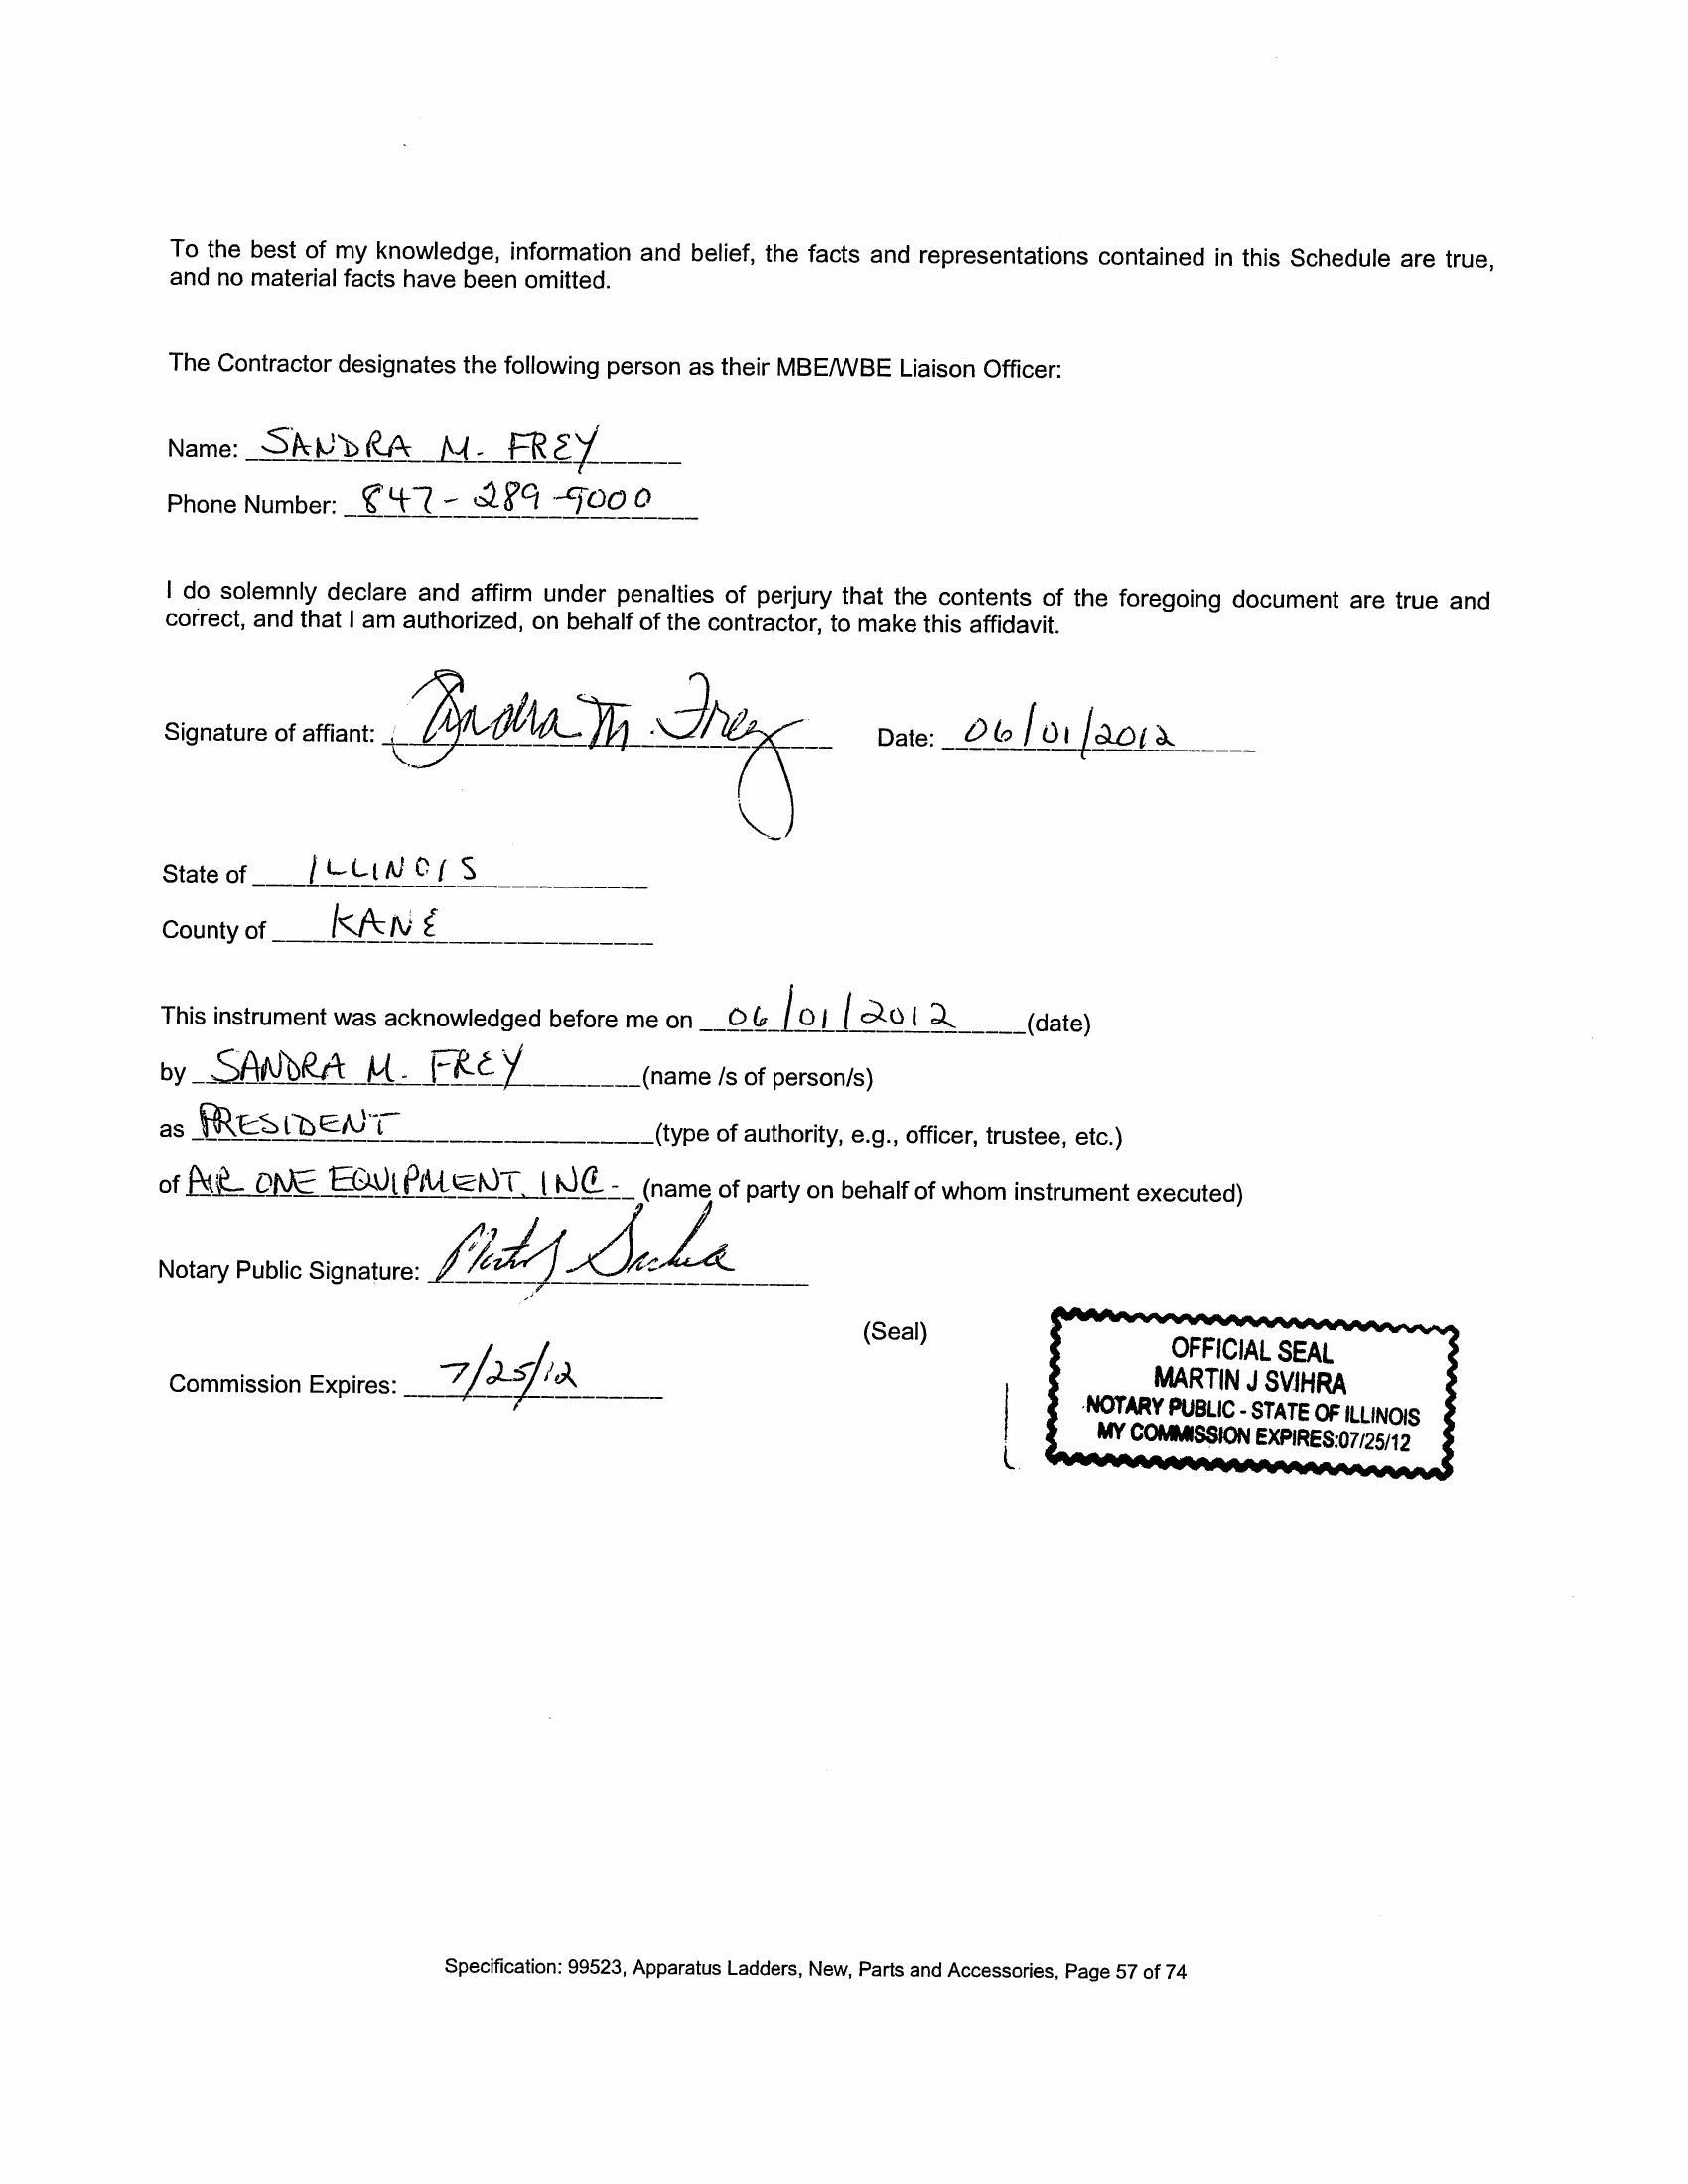 To the best of my knowledge, information and belief, the facts and representations contained in this Schedule are true,
and no material facts have been omitted.
The Contractor designates the following person as their MBE/WBE Liaison Officer:
Name: SANDRA M. FREY
Phone Number: 847-289-9000
I do solemnly declare and affirm under penalties of perjury that the contents of the foregoing document are true and
correct, and that I am authorized, on behalf of the contractor, to make this affidavit.
Signature of affiant: Sandra M. Frey Date: 06/01/2012
State of ILLINOIS
County of KANE
This instrument was acknowledged before me on 06/01/2012 (date)
by SANDRA M. FREY (name /s of person/s)
as PRESIDENT (type of authority, e.g., officer, trustee, etc.)
of AIR ONE EQUIPMENT, INC. (name of party on behalf of whom instrument executed)
Notary Public Signature: Martin J Svihra
(Seal)
Commission Expires: 7/25/12
OFFICIAL SEAL
MARTIN J SVIHRA
NOTARY PUBLIC - STATE OF ILLINOIS
MY COMMISSION EXPIRES:07/25/12
Specification: 99523, Apparatus Ladders, New, Parts and Accessories, Page 57 of 74